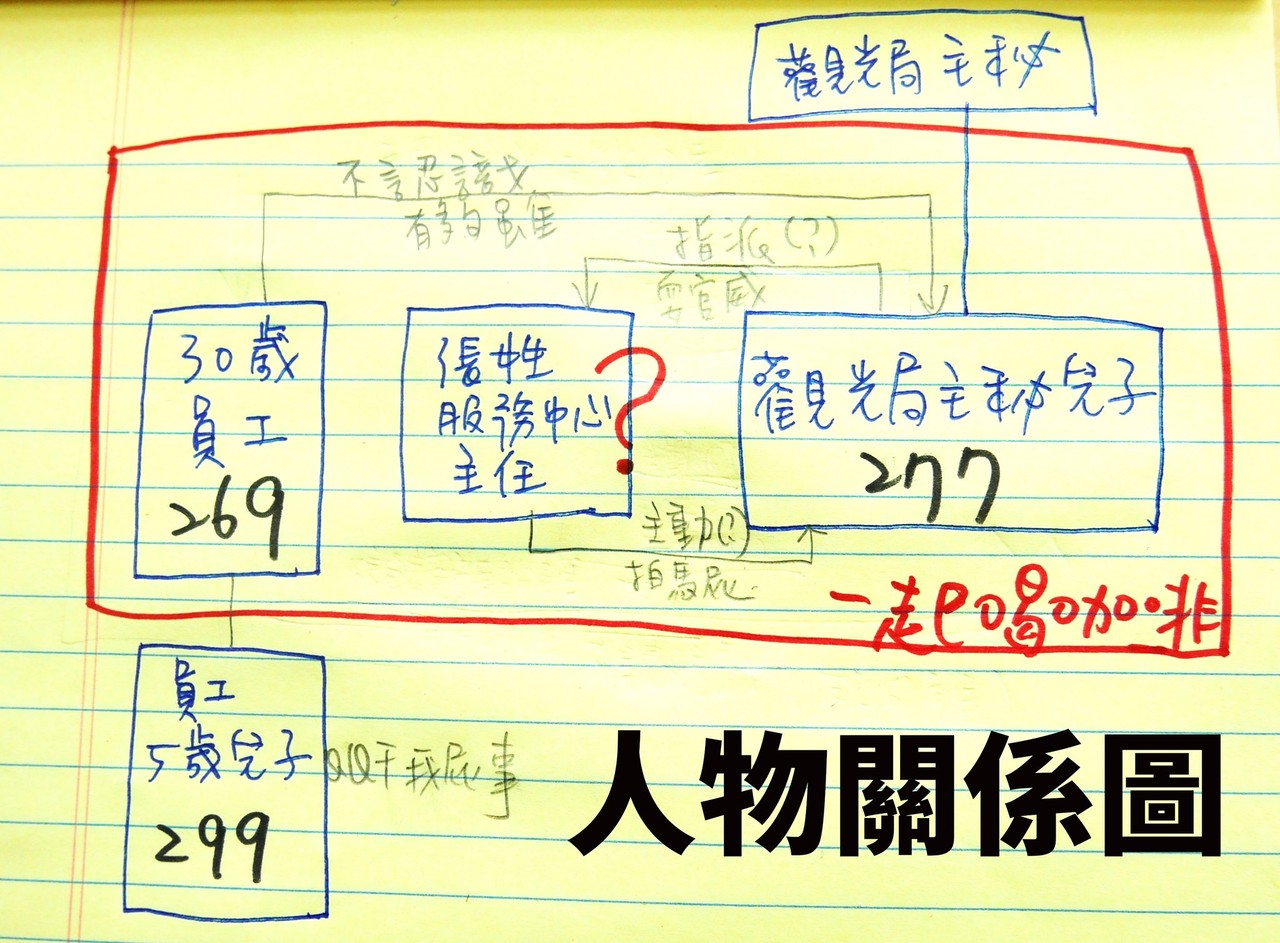 觀光局主秘
不認識
有夠雖
指派(?)
耍官威
30歲
員工
269
張姓
服務中心
主任
?
觀光局主秘兒子
277
主動(?)
拍馬屁
一起喝咖啡
員工
5歲兒子
299
QQ干我屁事
人物關係圖